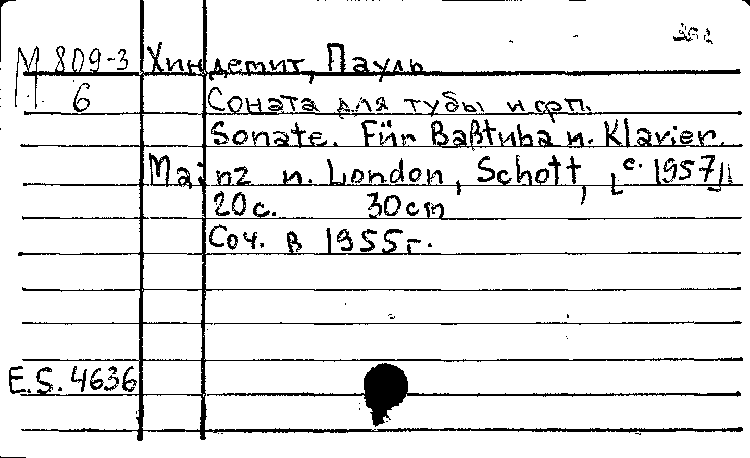 М 809-3 Хиндемит, Пауль
6 Соната для тубы и фп.
Sonate. Für Baßtuba u. Klavier.
Mainz u. London, Schott, [c. 1957]
20 с. 30 cm
Соч. в 1955 г.
E.S. 4636